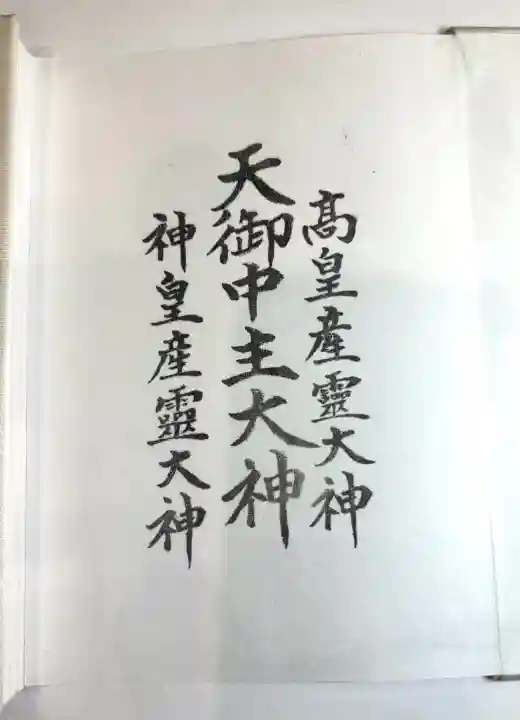 髙皇産靈大神
天御中主大神
神皇産靈大神